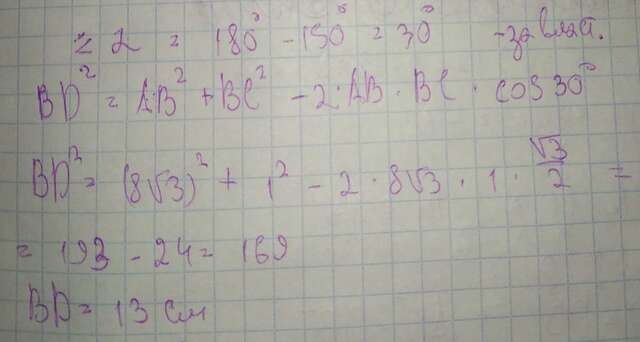 ∠2 = 180° - 150° = 30° - за власт.
BD² = AB² + BC² - 2·AB·BC·cos30°
BD² = (8√3)² + 1² - 2·8√3·1·√3/2 =
= 193 - 24 = 169
BD = 13 см